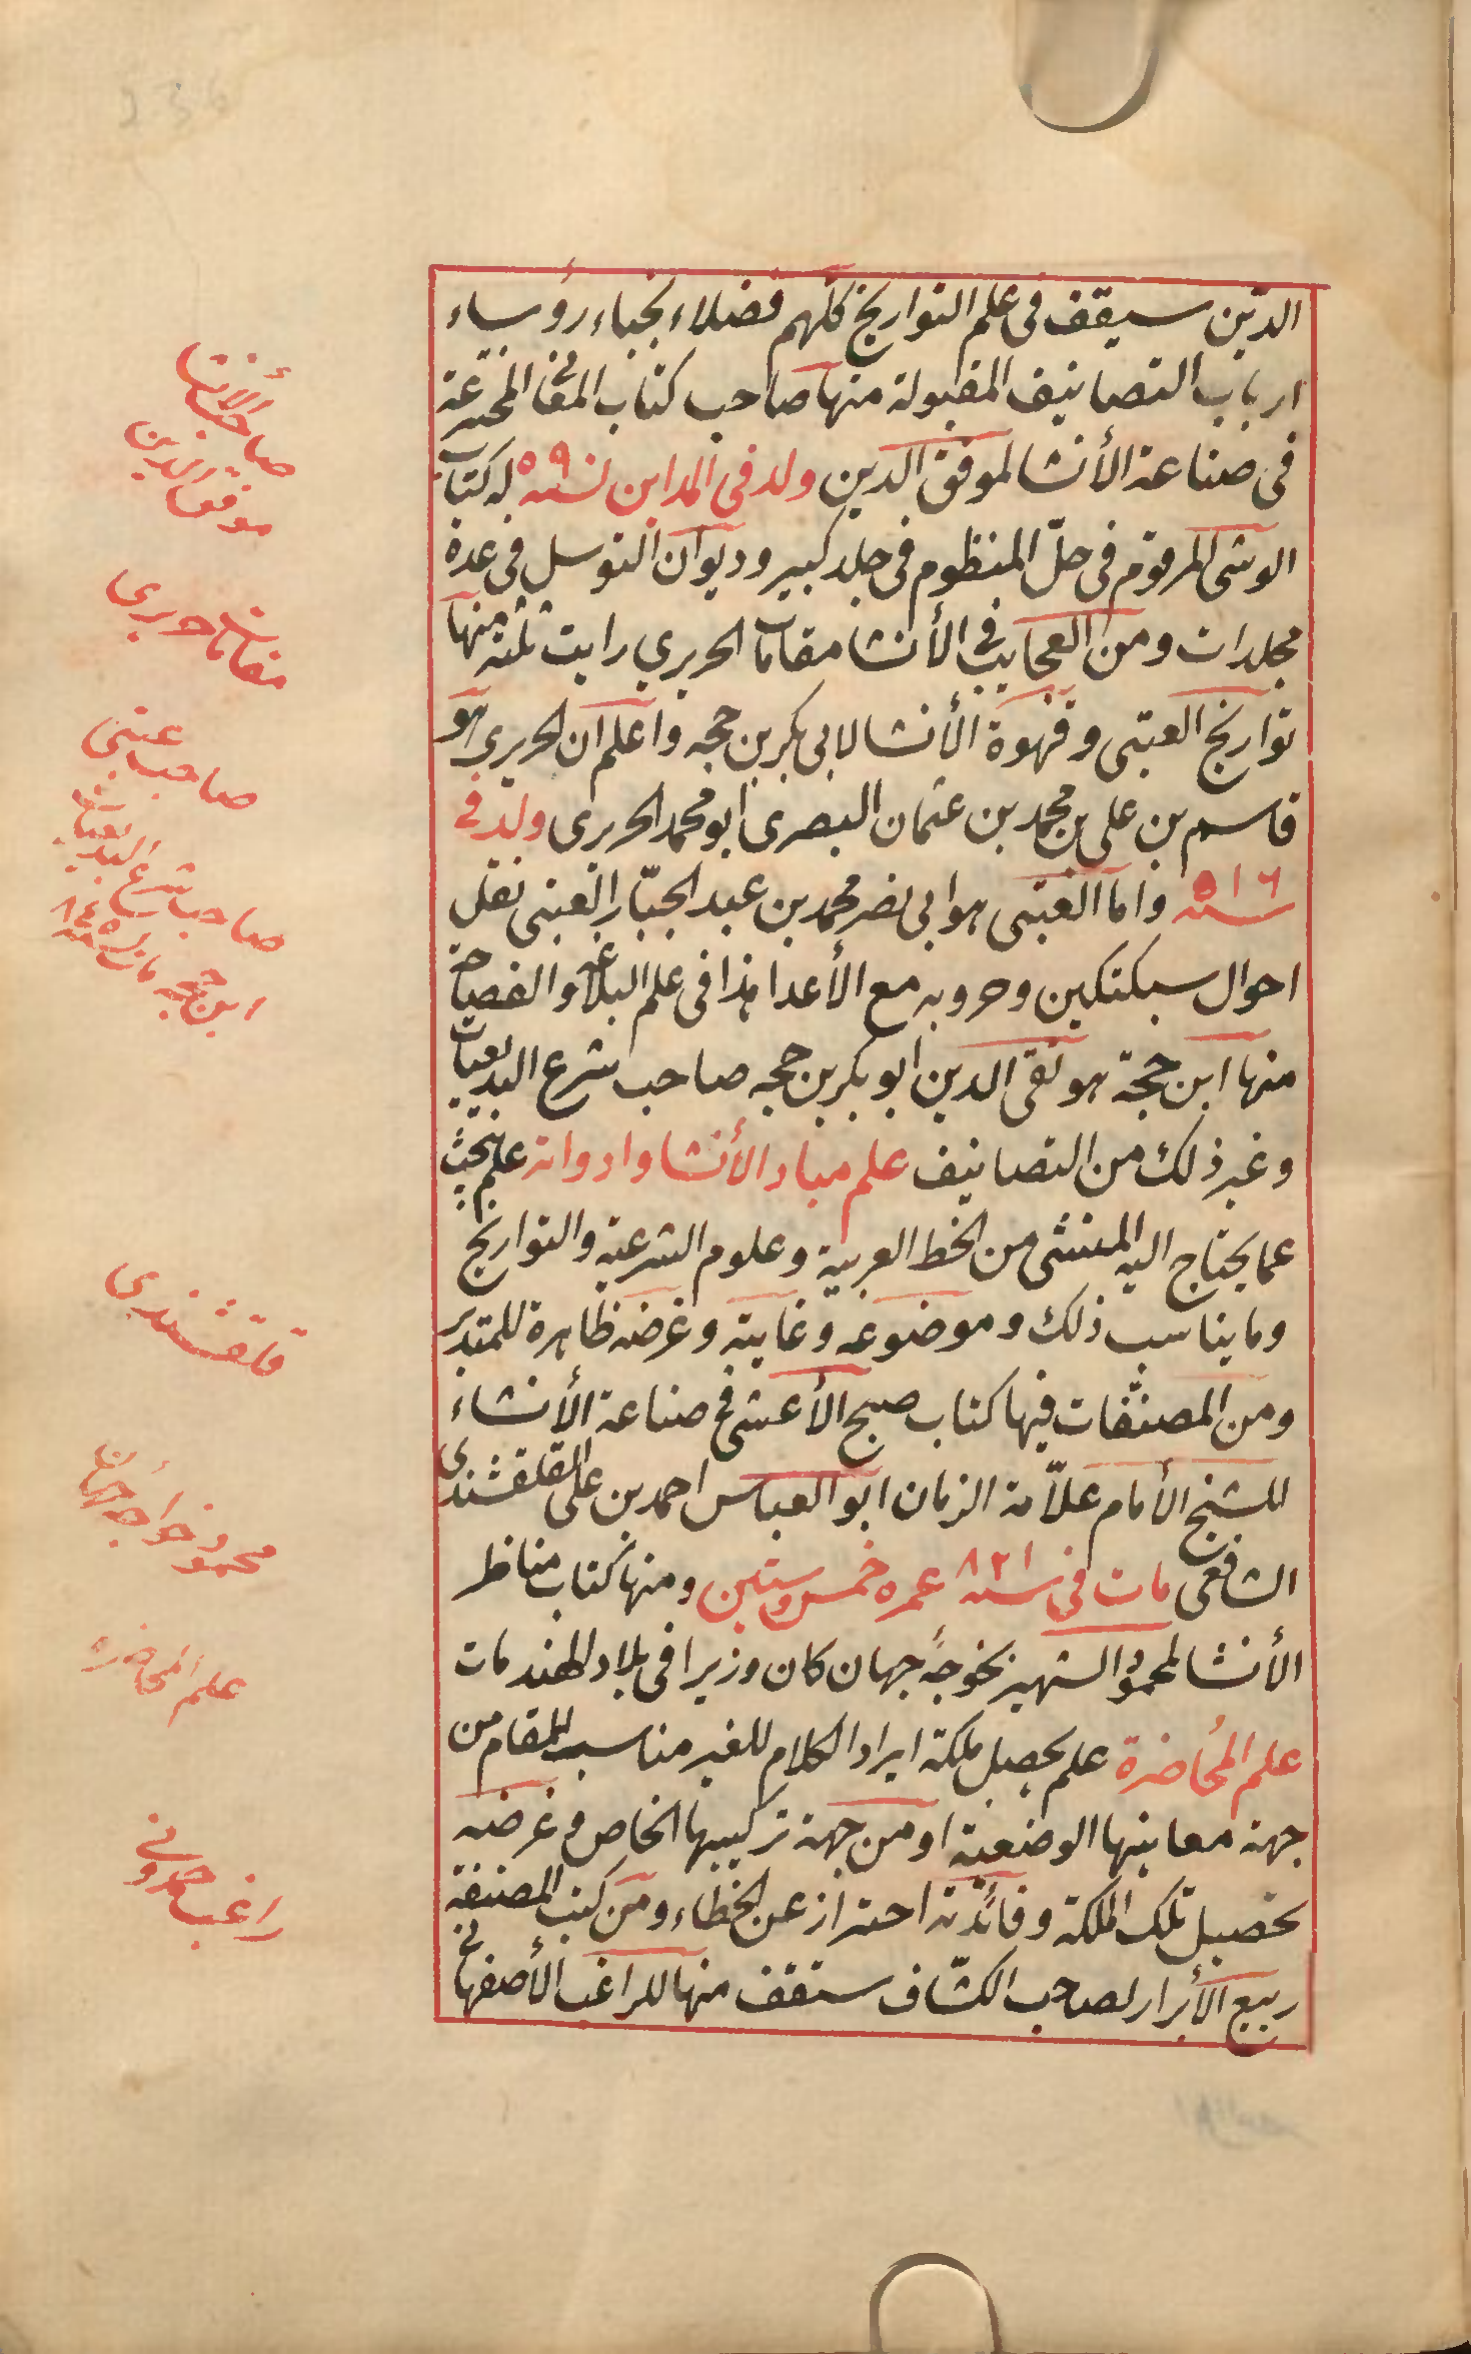 الدين سيقف فى علم التواريخ كلهم فضلاء نجباء رؤساء
ارباب التصانيف المقبولة منها صاحب كتاب المعانى المخترعة
فى صناعة الأنشا لموفق الدين ولد فى المداين سنه ٥٩٠ له كتاب
الوشى المرقوم فى حلّ المنظوم فى جلد كبير وديوان التوسل فى عدة
مجلدات ومن العجايب فى الأنشا مقامات الحريرى رايت ثلثه منها
تواريخ العتبى وقهوة الأنشا لابى بكر بن حجه واعلم ان الحريرى هو
قاسم بن على بن محمد بن عثمان البصرى ابو محمد الحريرى ولد فى
سنه ٥١٦ واما العتبى هو ابى نصر محمد بن عبد الجبّار العتبى نقل
احوال سبكتكين وحروبه مع الأعدا هذا فى علم البلاغه والفصاحة
منها ابن حجة هو تقى الدين ابو بكر بن حجه صاحب شرع البديعيات
وغير ذلك من التصانيف علم مباد الأنشا وادواته علم يبحث
عما يحتاج اليه المنشى من الخط العربية وعلوم الشرعية والتواريخ
وما يناسب ذلك وموضوعه وغايته وغرضه ظاهرة للمتدبر
ومن المصنّفات فيها كتاب صبح الأعشى فى صناعة الأنشاء
للشيخ الأمام علاّمة الزمان ابو العباس احمد بن على القلقشندى
الشافعى مات فى سنه ٨٢١ عمره خمس وستين ومنها كتاب مناظر
الأنشا لمحمود الشهير بخوجهٔ جهان كان وزيرا فى بلاد الهند مات
علم المُحاضرة علم يحصل ملكة ايراد الكلام للغير مناسب للمقام من
جهة معانيها الوضعية او من جهة تركيبها الخاص وغرضه
تحصيل تلك الملكة وفائدته احتراز عن الخطاء ومن كتب المصنفة
ربيع الأبرار لصاحب الكشّاف ستقف منها للراغب الأصفهانى
صاحب الأنشا
موفق الدين
مقامات حريرى
صاحب عتبى
صاحب شرع البديعيات
ابن حجه مات سنه ٨٤٥
قلقشندى
محمود خواجه جهان
علم المحاضره
راغب